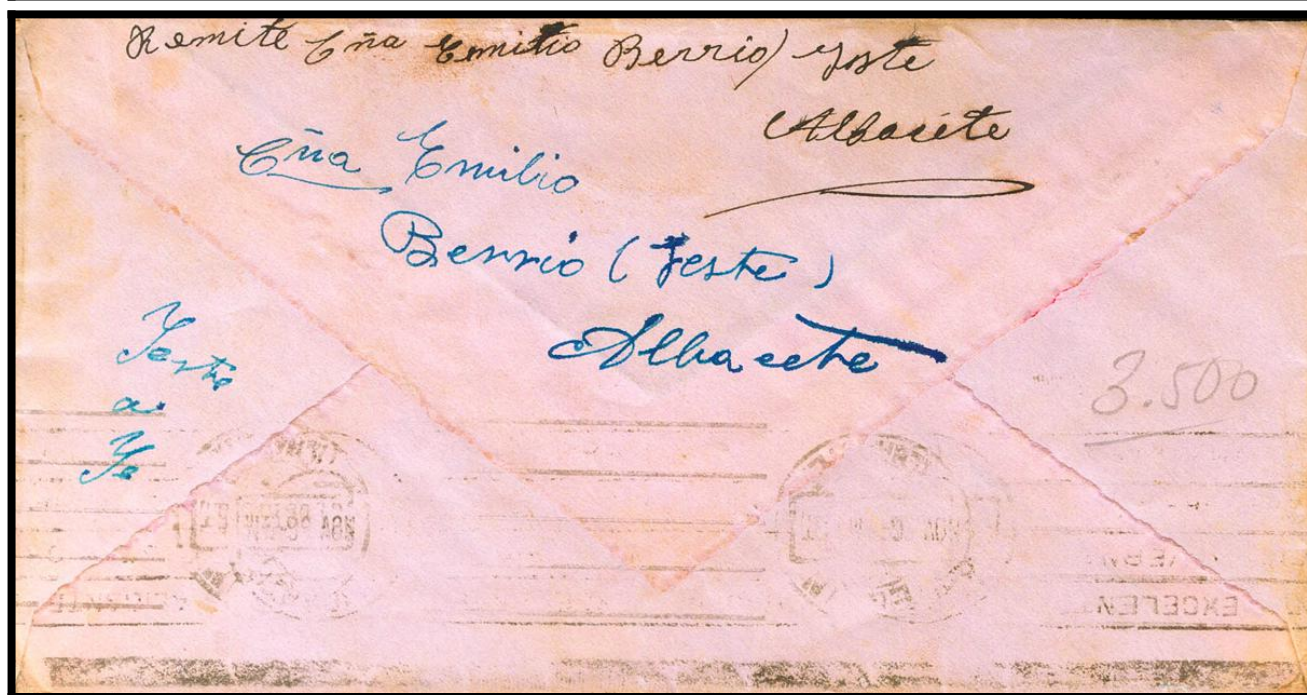 Remite Cña Emilio Berrio) Yste
Albacete
Cña Emilio
Berrio (Yeste)
Albacete
Yeste
a
Ye
3.500
EXCELEN